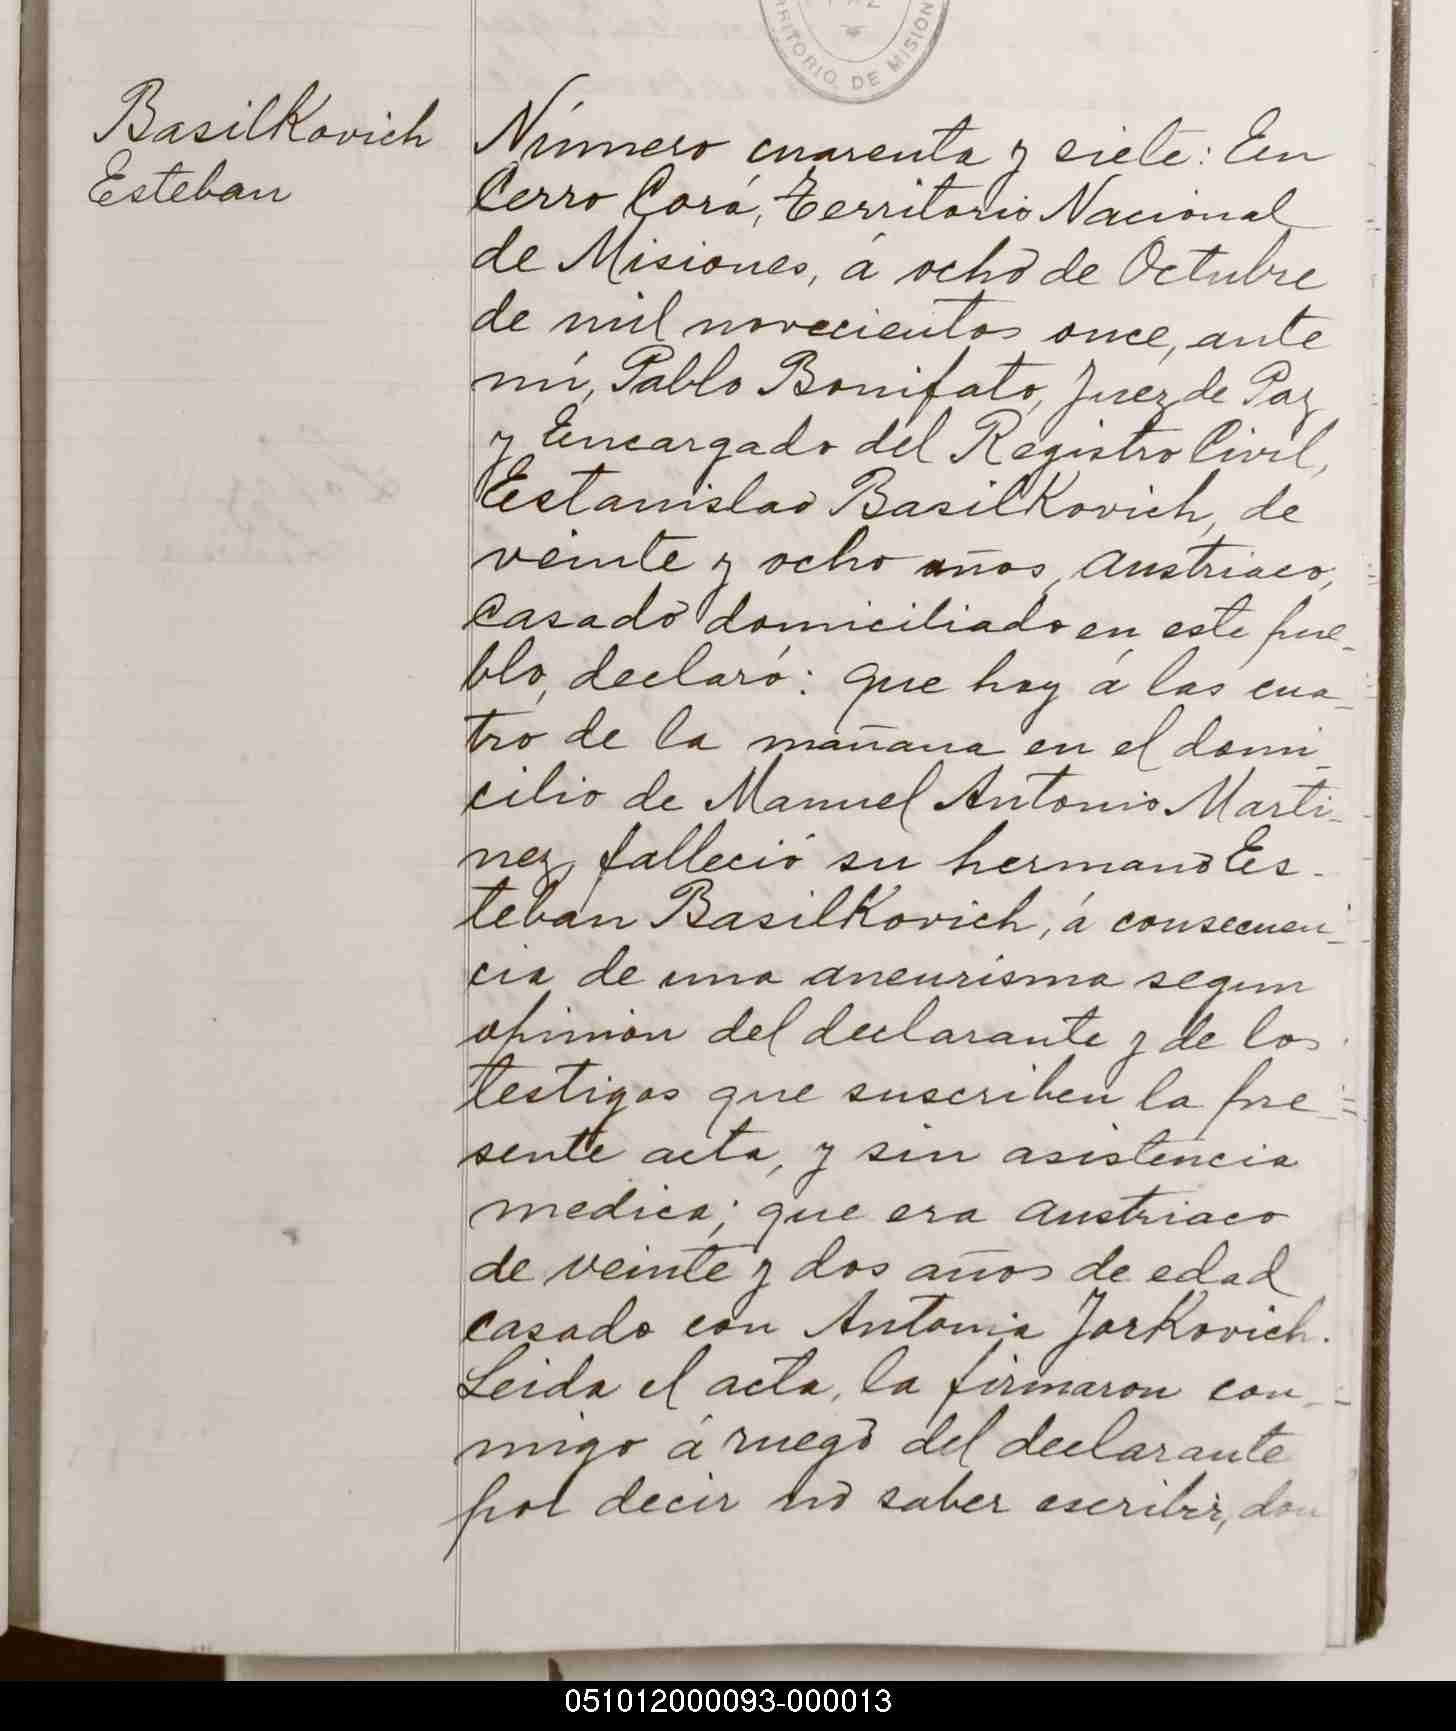 RRITORIO DE MISION
Basilkovich
Esteban
Número cuarenta y siete: En
Cerro Corá, Territorio Nacional
de Misiones, á ocho de Octubre
de mil novecientos once, ante
mi, Pablo Bonifato, Juez de Paz
y Encargado del Registro Civil,
Estanislao Basilkovich, de
veinte y ocho años, austriaco,
casado domiciliado en este pue-
blo, declaró: que hoy á las cua-
tro de la mañana en el domi-
cilio de Manuel Antonio Marti-
nez, falleció su hermano Es-
teban Basilkovich, á consecuen-
cia de una aneurisma segun
opinion del declarante y de los
testigos que suscriben la pre-
sente acta, y sin asistencia
medica; que era austriaco
de veinte y dos años de edad
casado con Antonia Jorkovich.
Leida el acta, la firmaron con-
migo á ruego del declarante
por decir no saber escribir, don
051012000093-000013